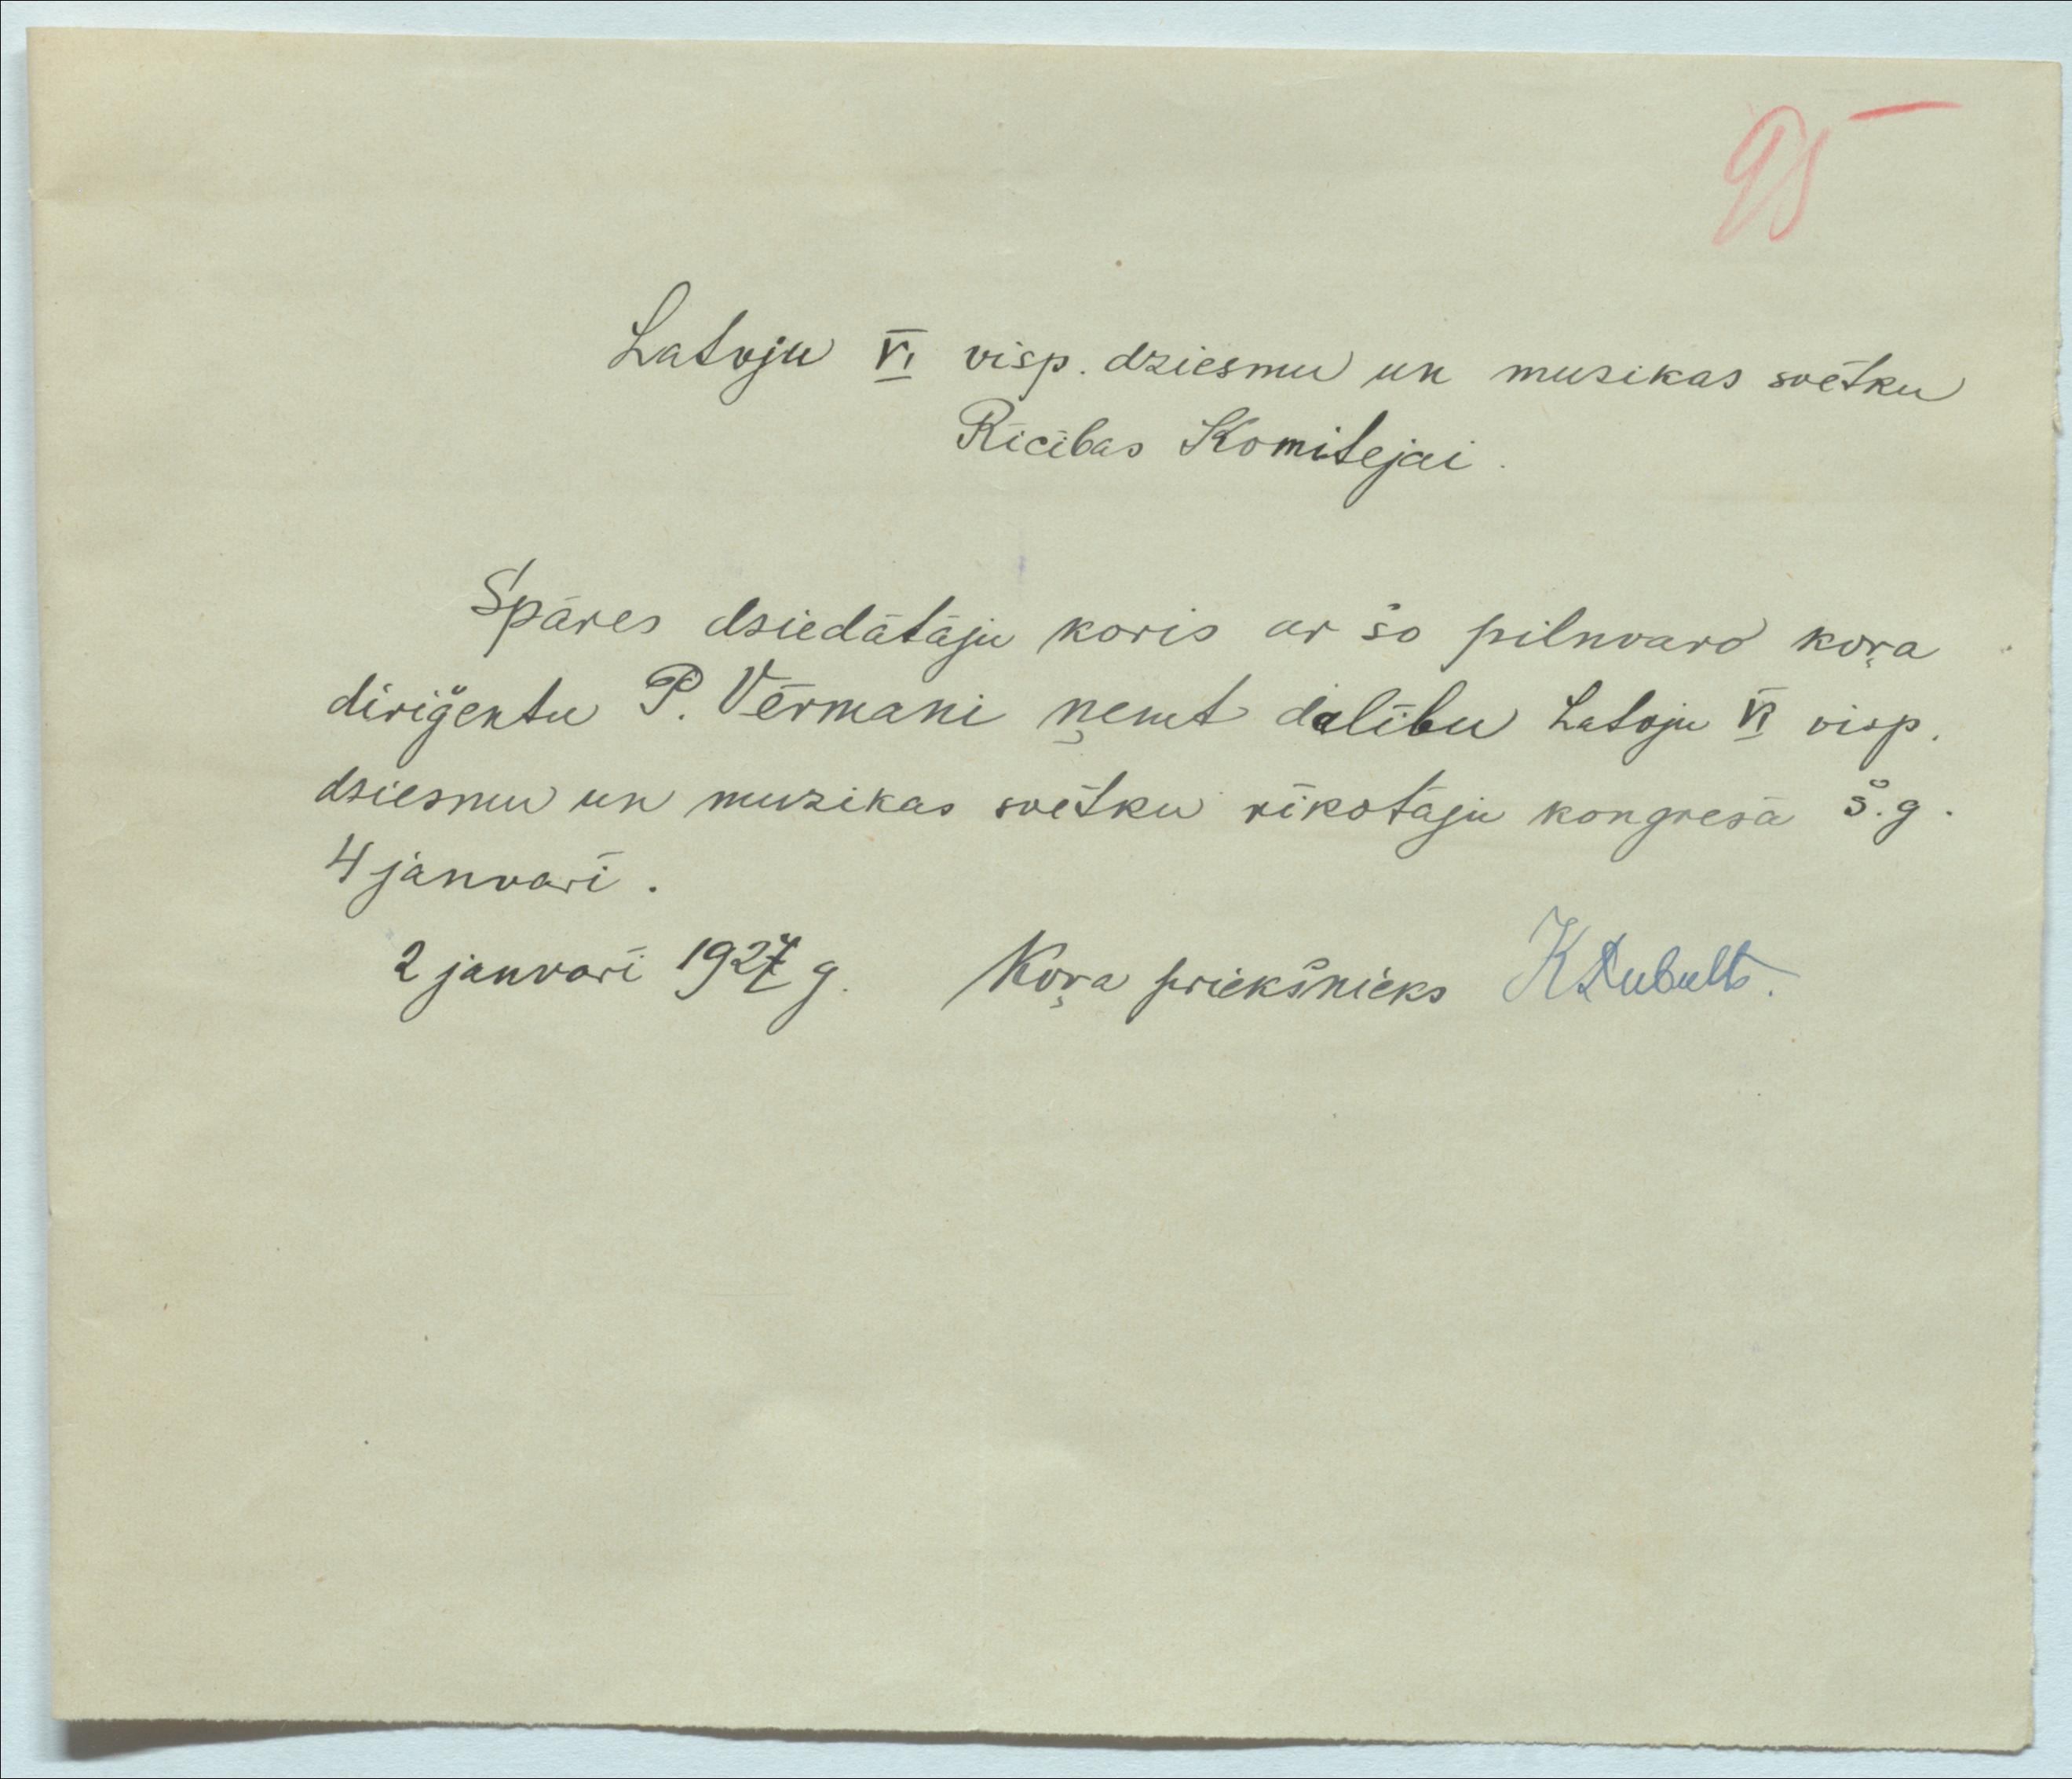 95
Latvju VI visp. dziesmu un muzikas svētku
Rīcības Komitejai.
Spāres dziedātāju koris ar šo pilnvaro koŗa
diriģentu P. Vērmani ņemt dalību Latvju VI visp.
dziesmu un muzikas svētku rīkotāju kongresā š.g.
4 janvarī.
2 janvarī g. Koŗa priekšnieks KDubults.